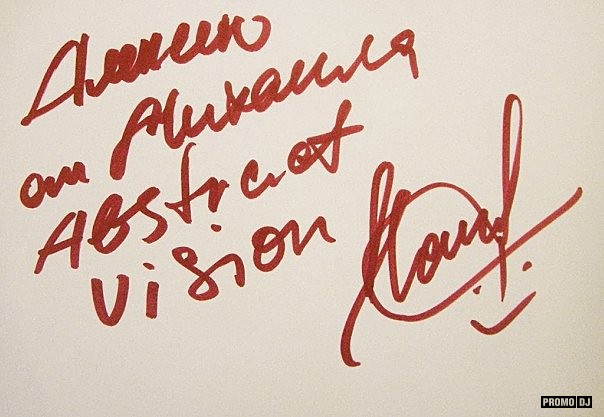 от Михаила
ABStract
Vision
PROMO DJ